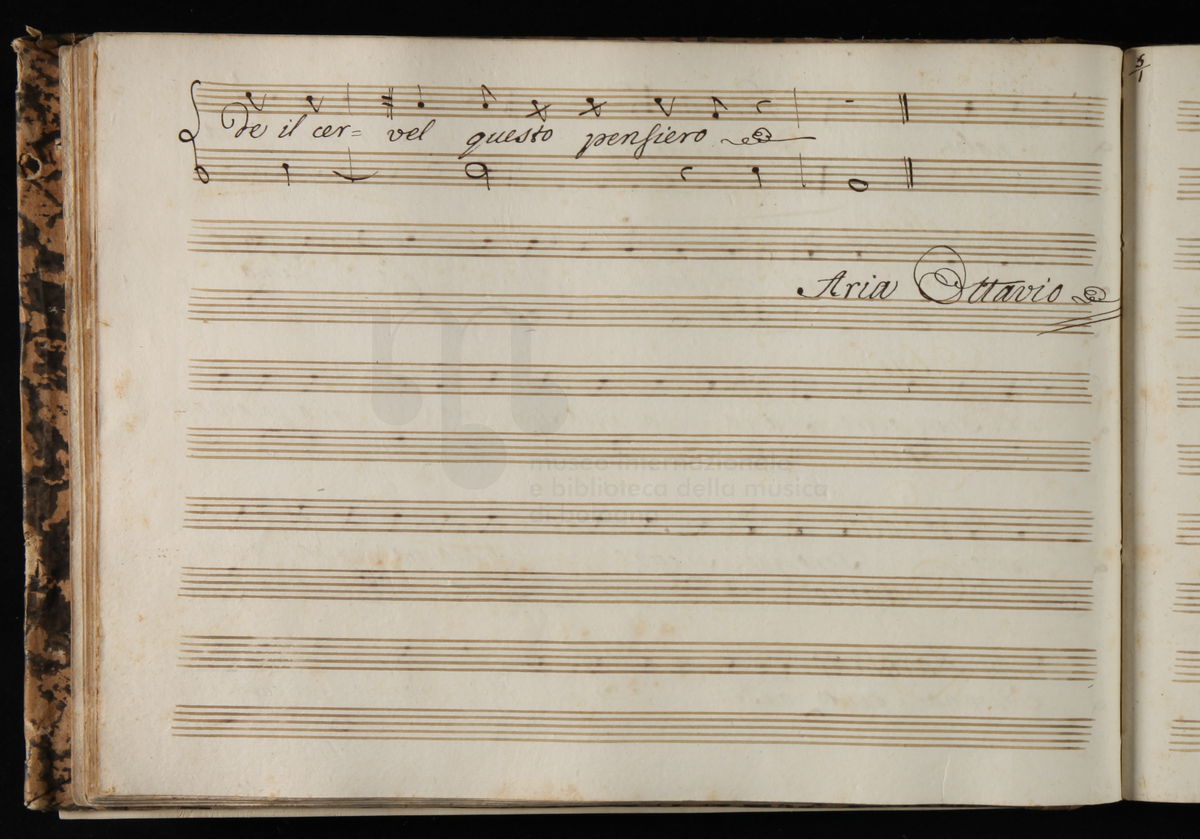 de il cer= vel questo pensiero
Aria Ottavio
museo internazionale
e biblioteca della musica
di bologna
5/1